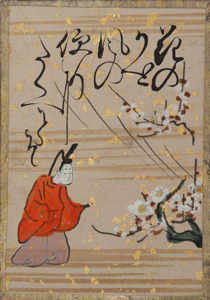 花の
かを
風の
便に
たくへてそ